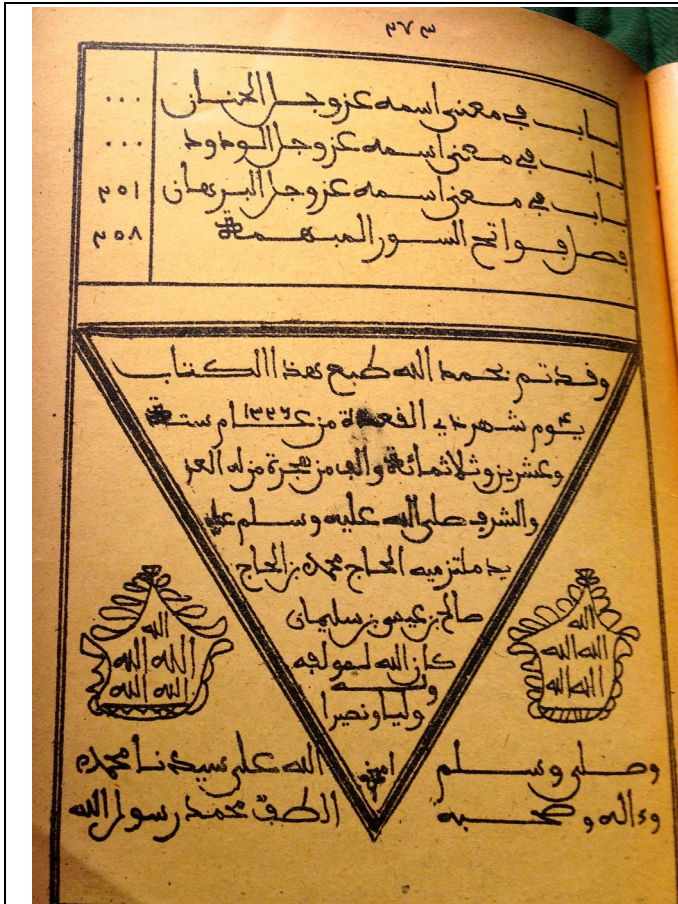 ٣٧٣
باب في معنى اسمه عز وجل الحنان ...
باب في معنى اسمه عز وجل الودود ...
باب في معنى اسمه عز وجل البرهان ٣٥١
فصل فواتح السور المبهمة ٣٥٨
وقد تم بحمد الله طبع هذا الكتاب
يوم ٤ شهر ذي القعدة من ١٣٢٦ عام ستة
وعشرين وثلاثمائة والف من هجرة من له العز
والشرف صلى الله عليه وسلم على
يد ملتزميه الحاج محمد بن الحاج
صالح بن عيسى بن سليمان
كان الله لمولفه
وله
وليا ونصيرا
امين
الله
الله الله
الله الله
الله
الله الله
الله الله
وصلى وسلم الله على سيدنا محمد
وءاله وصحبه محمد رسول الله